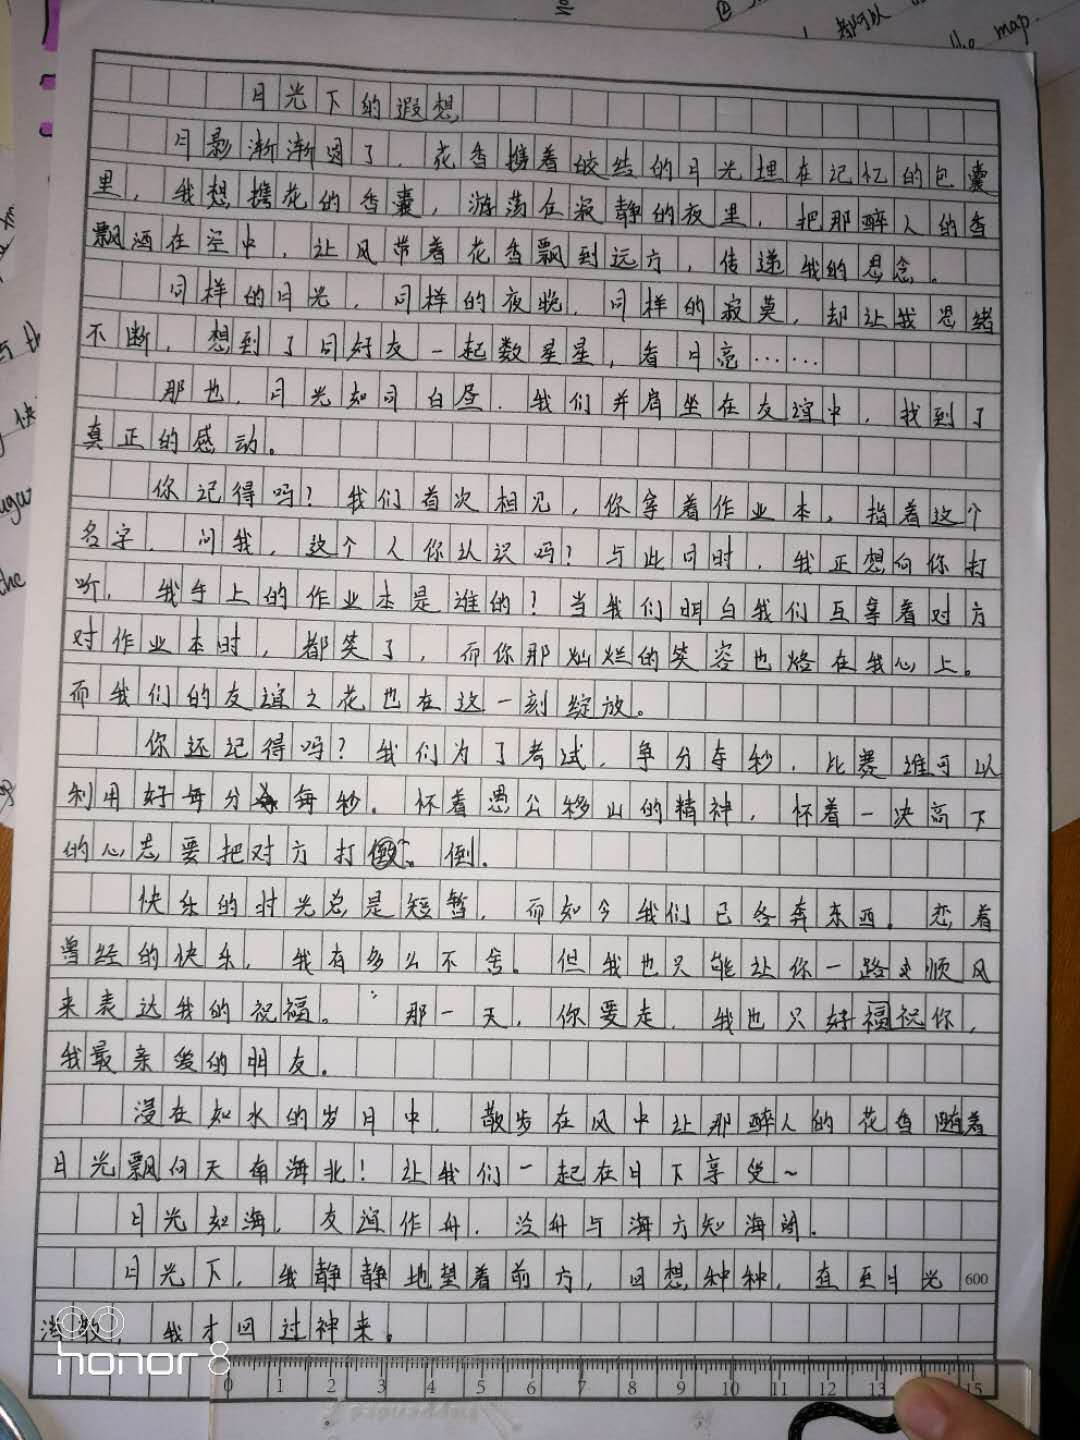 月光下的遐想
月影渐渐圆了，花香携着皎结的月光埋在记忆的包囊
里，我想携花的香囊，游荡在寂静的夜里，把那醉人的香
飘洒在空中，让风带着花香飘到远方，传递我的思念。
同样的月光，同样的夜晚，同样的寂莫，却让我思绪
不断，想到了同好友一起数星星，看月亮……
那也，月光如同白昼，我们并肩坐在友谊中，找到了
真正的感动。
你记得吗？我们首次相见，你拿着作业本，指着这个
名字，问我，这个人你认识吗？与此同时，我正想向你打
听，我手上的作业本是谁的？当我们明白我们互拿着对方
对作业本时，都笑了，而你那灿烂的笑容也烙在我心上。
而我们的友谊之花也在这一刻绽放。
你还记得吗？我们为了考试，争分夺秒，比赛谁可以
利用好每分每秒。怀着愚公移山的精神，怀着一决高下
的心志要把对方打倒。
快乐的时光总是短暂，而如今我们已各奔东西。恋着
曾经的快乐，我有多么不舍。但我也只能让你一路顺风
来表达我的祝福。那一天，你要走，我也只好福祝你，
我最亲爱的朋友。
漫在如水的岁月中，散步在风中让那醉人的花香随着
月光飘向天南海北！让我们一起在月下享受~
月光如海，友谊作舟，泛舟与海方知海阔。
月光下，我静静地望着前方，回想种种，直至月光
600
散，我才回过神来。
honor 8
0 1 2 3 4 5 6 7 8 9 10 11 12 13 15
map.
the